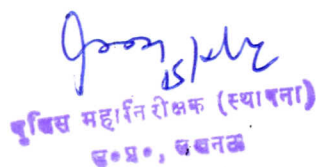 15/12
पुलिस महानिरीक्षक (स्थापना)
उ॰प्र॰, लखनऊ